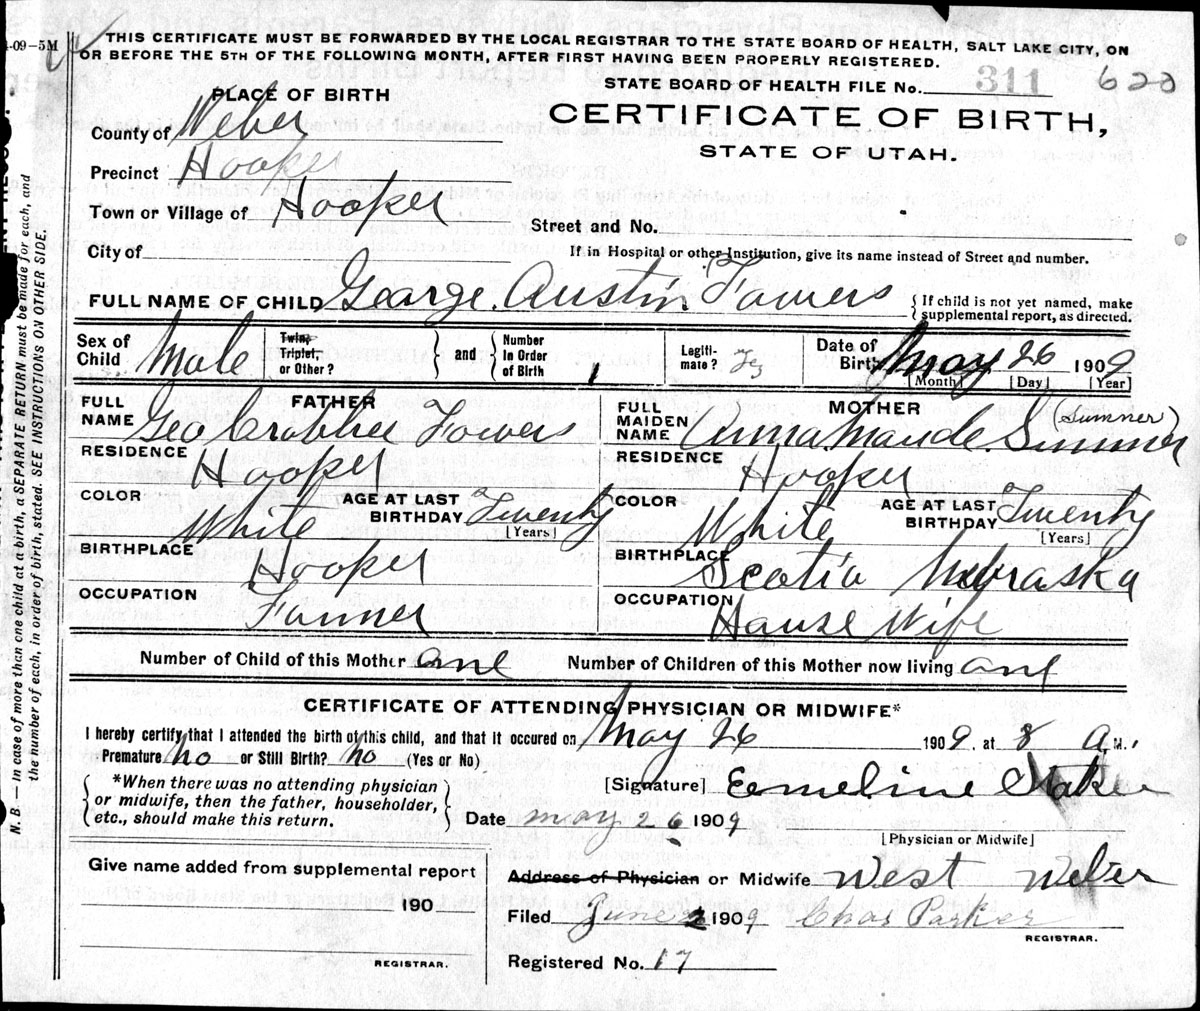 4-09-5M
THIS CERTIFICATE MUST BE FORWARDED BY THE LOCAL REGISTRAR TO THE STATE BOARD OF HEALTH, SALT LAKE CITY, ON
OR BEFORE THE 5TH OF THE FOLLOWING MONTH, AFTER FIRST HAVING BEEN PROPERLY REGISTERED.
STATE BOARD OF HEALTH FILE No. 311 620
PLACE OF BIRTH
CERTIFICATE OF BIRTH,
STATE OF UTAH.
County of Weber
Precinct Hooper
Town or Village of Hooper
Street and No.
City of
If in Hospital or other Institution, give its name instead of Street and number.
FULL NAME OF CHILD George Austin Fowers { If child is not yet named, make
supplemental report, as directed.
Sex of Child Male Twin, Triplet, or Other? } and { Number in Order of Birth 1 Legiti-mate? Yes Date of Birth May 26 1909
[Month] [Day] [Year]
FULL NAME FATHER Geo Crabbe Fowers
FULL MAIDEN NAME MOTHER Anna Maude Summer (Sumner)
RESIDENCE Hooper
RESIDENCE Hooper
COLOR White AGE AT LAST BIRTHDAY Twenty [Years]
COLOR White AGE AT LAST BIRTHDAY Twenty [Years]
BIRTHPLACE Hooper
BIRTHPLACE Scotia Nebraska
OCCUPATION Farmer
OCCUPATION House Wife
Number of Child of this Mother one Number of Children of this Mother now living one
CERTIFICATE OF ATTENDING PHYSICIAN OR MIDWIFE*
I hereby certify that I attended the birth of this child, and that it occured on May 26 1909, at 8 a.M.
Premature No or Still Birth? No (Yes or No)
{ *When there was no attending physician
or midwife, then the father, householder,
etc., should make this return. }
[Signature] Eemeline Staker
Date May 26 1909
[Physician or Midwife]
Give name added from supplemental report
190
REGISTRAR.
Address of Physician or Midwife West Weber
Filed June 2 1909 Chas Parker
REGISTRAR.
Registered No. 17
N. B.—In case of more than one child at a birth, a SEPARATE RETURN must be made for each, and
the number of each, in order of birth, stated. SEE INSTRUCTIONS ON OTHER SIDE.